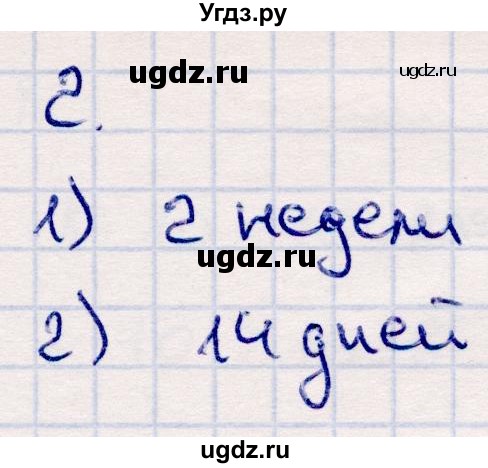 Угдз.ру
ugdz.ru
ugdz.ru
2.
1) 2 недели
ugdz.ru
2) 14 дней
ugdz.ru
ugdz.ru